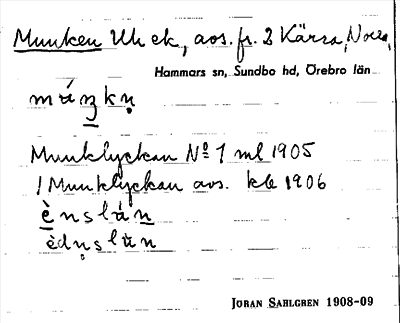 Munken Uh ek, avs. fr. 2 Kärra, Norra,
Hammars sn, Sundbo hd, Örebro län
Munklyckan Nº 1 ml 1905
1 Munklyckan avs. kle 1906
ènslàn
JÖRAN SAHLGREN 1908-09